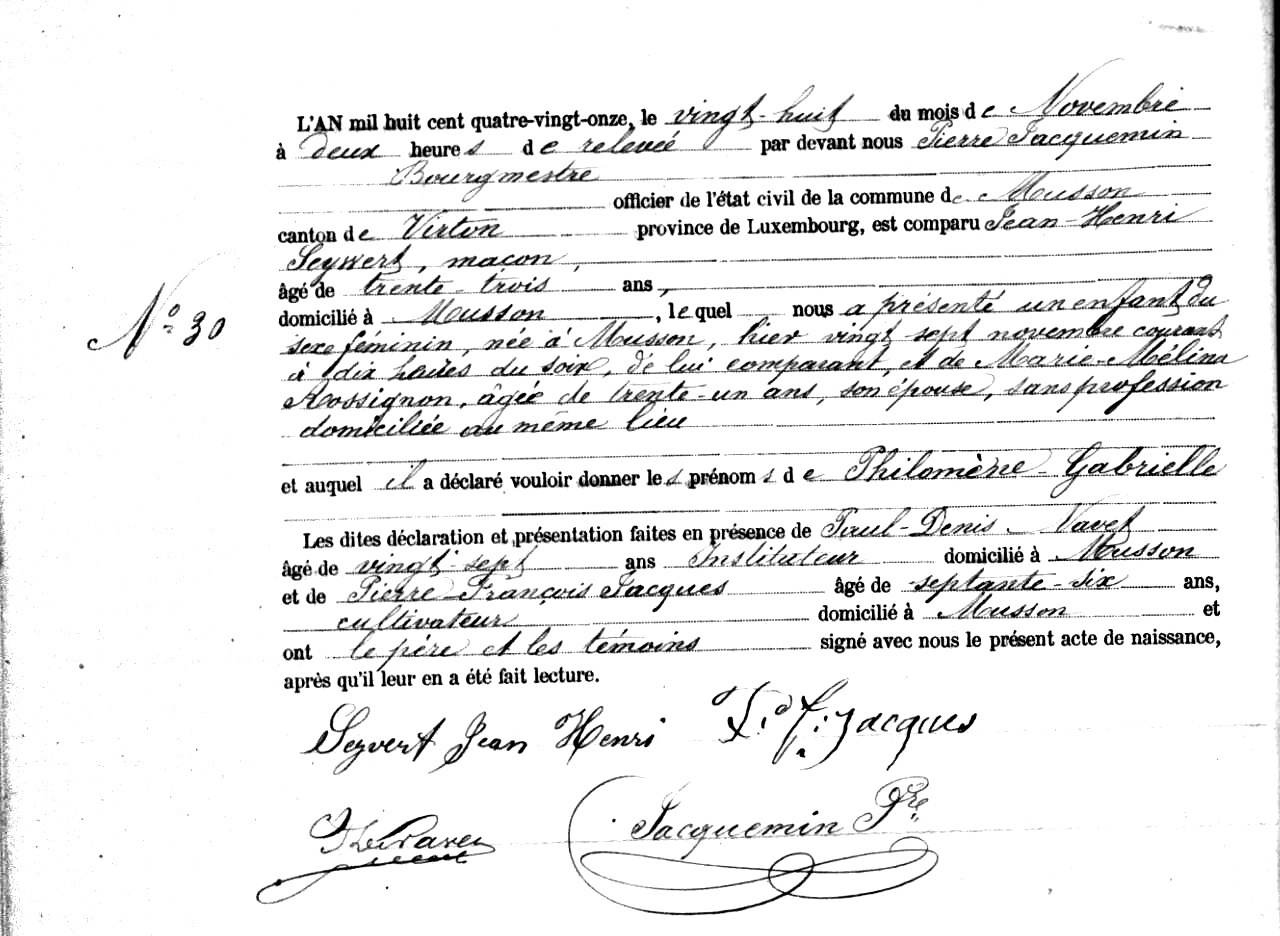 L'AN mil huit cent quatre-vingt-onze, le vingt-huit du mois de Novembre
à deux heures de relevée par devant nous Pierre Jacquemin
Bourgmestre
officier de l'état civil de la commune de Musson
canton de Virton province de Luxembourg, est comparu Jean-Henri
Seywert, maçon,
âgé de trente-trois ans,
domicilié à Musson, lequel nous a présenté un enfant du
N° 30
sexe féminin, née à Musson, hier vingt-sept novembre courant
à dix heures du soir, de lui comparant, et de Marie-Mélina
Rossignon, âgée de trente-un ans, son épouse, sans profession
domiciliée au même lieu
et auquel il a déclaré vouloir donner les prénoms de Philomène-Gabrielle
Les dites déclaration et présentation faites en présence de Paul-Denis Navet
âgé de vingt-sept ans Instituteur domicilié à Musson
et de Pierre-François Jacques âgé de septante-six ans,
cultivateur domicilié à Musson et
ont le père et les témoins signé avec nous le présent acte de naissance,
après qu'il leur en a été fait lecture.
Seyvert Jean Henri P. F. Jacques
Jacquemin Pre